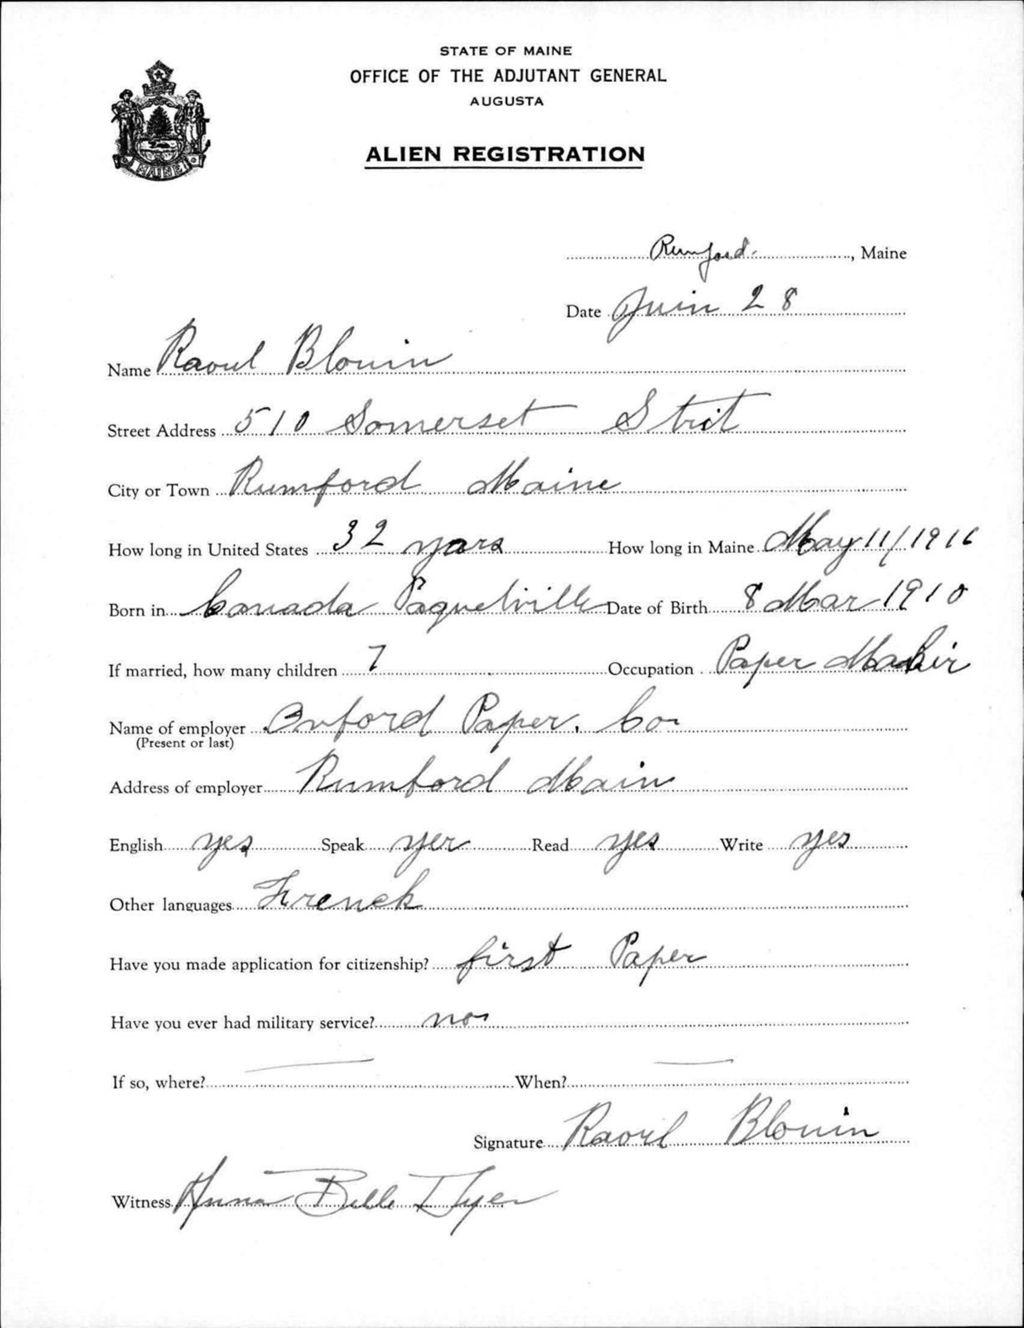 STATE OF MAINE
OFFICE OF THE ADJUTANT GENERAL
AUGUSTA
ALIEN REGISTRATION
MAINE
Rumford, Maine
Date Juin 28
Name Raoul Blouin
Street Address 510 Somerset Strit
City or Town Rumford Maine
How long in United States 32 years How long in Maine May 11/1916
Born in Canada Paquetville Date of Birth 8 Mar 1910
If married, how many children 7 Occupation Paper Makir
Name of employer Oxford Paper. Co-
(Present or last)
Address of employer Rumford Main
English yes Speak yes Read yes Write yes
Other languages French
Have you made application for citizenship? first Paper
Have you ever had military service? no
If so, where? — When? —
Signature Raoul Blouin
Witness Anna Belle Dyer